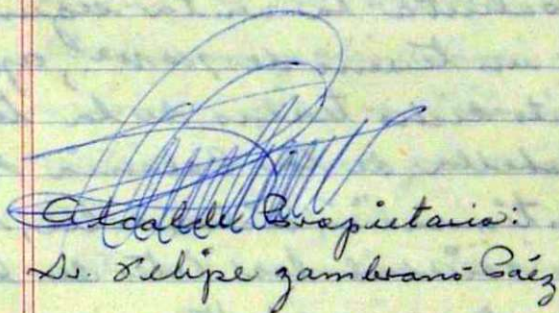 Alcalde Propietario:
Dr. Felipe Zambrano Páez